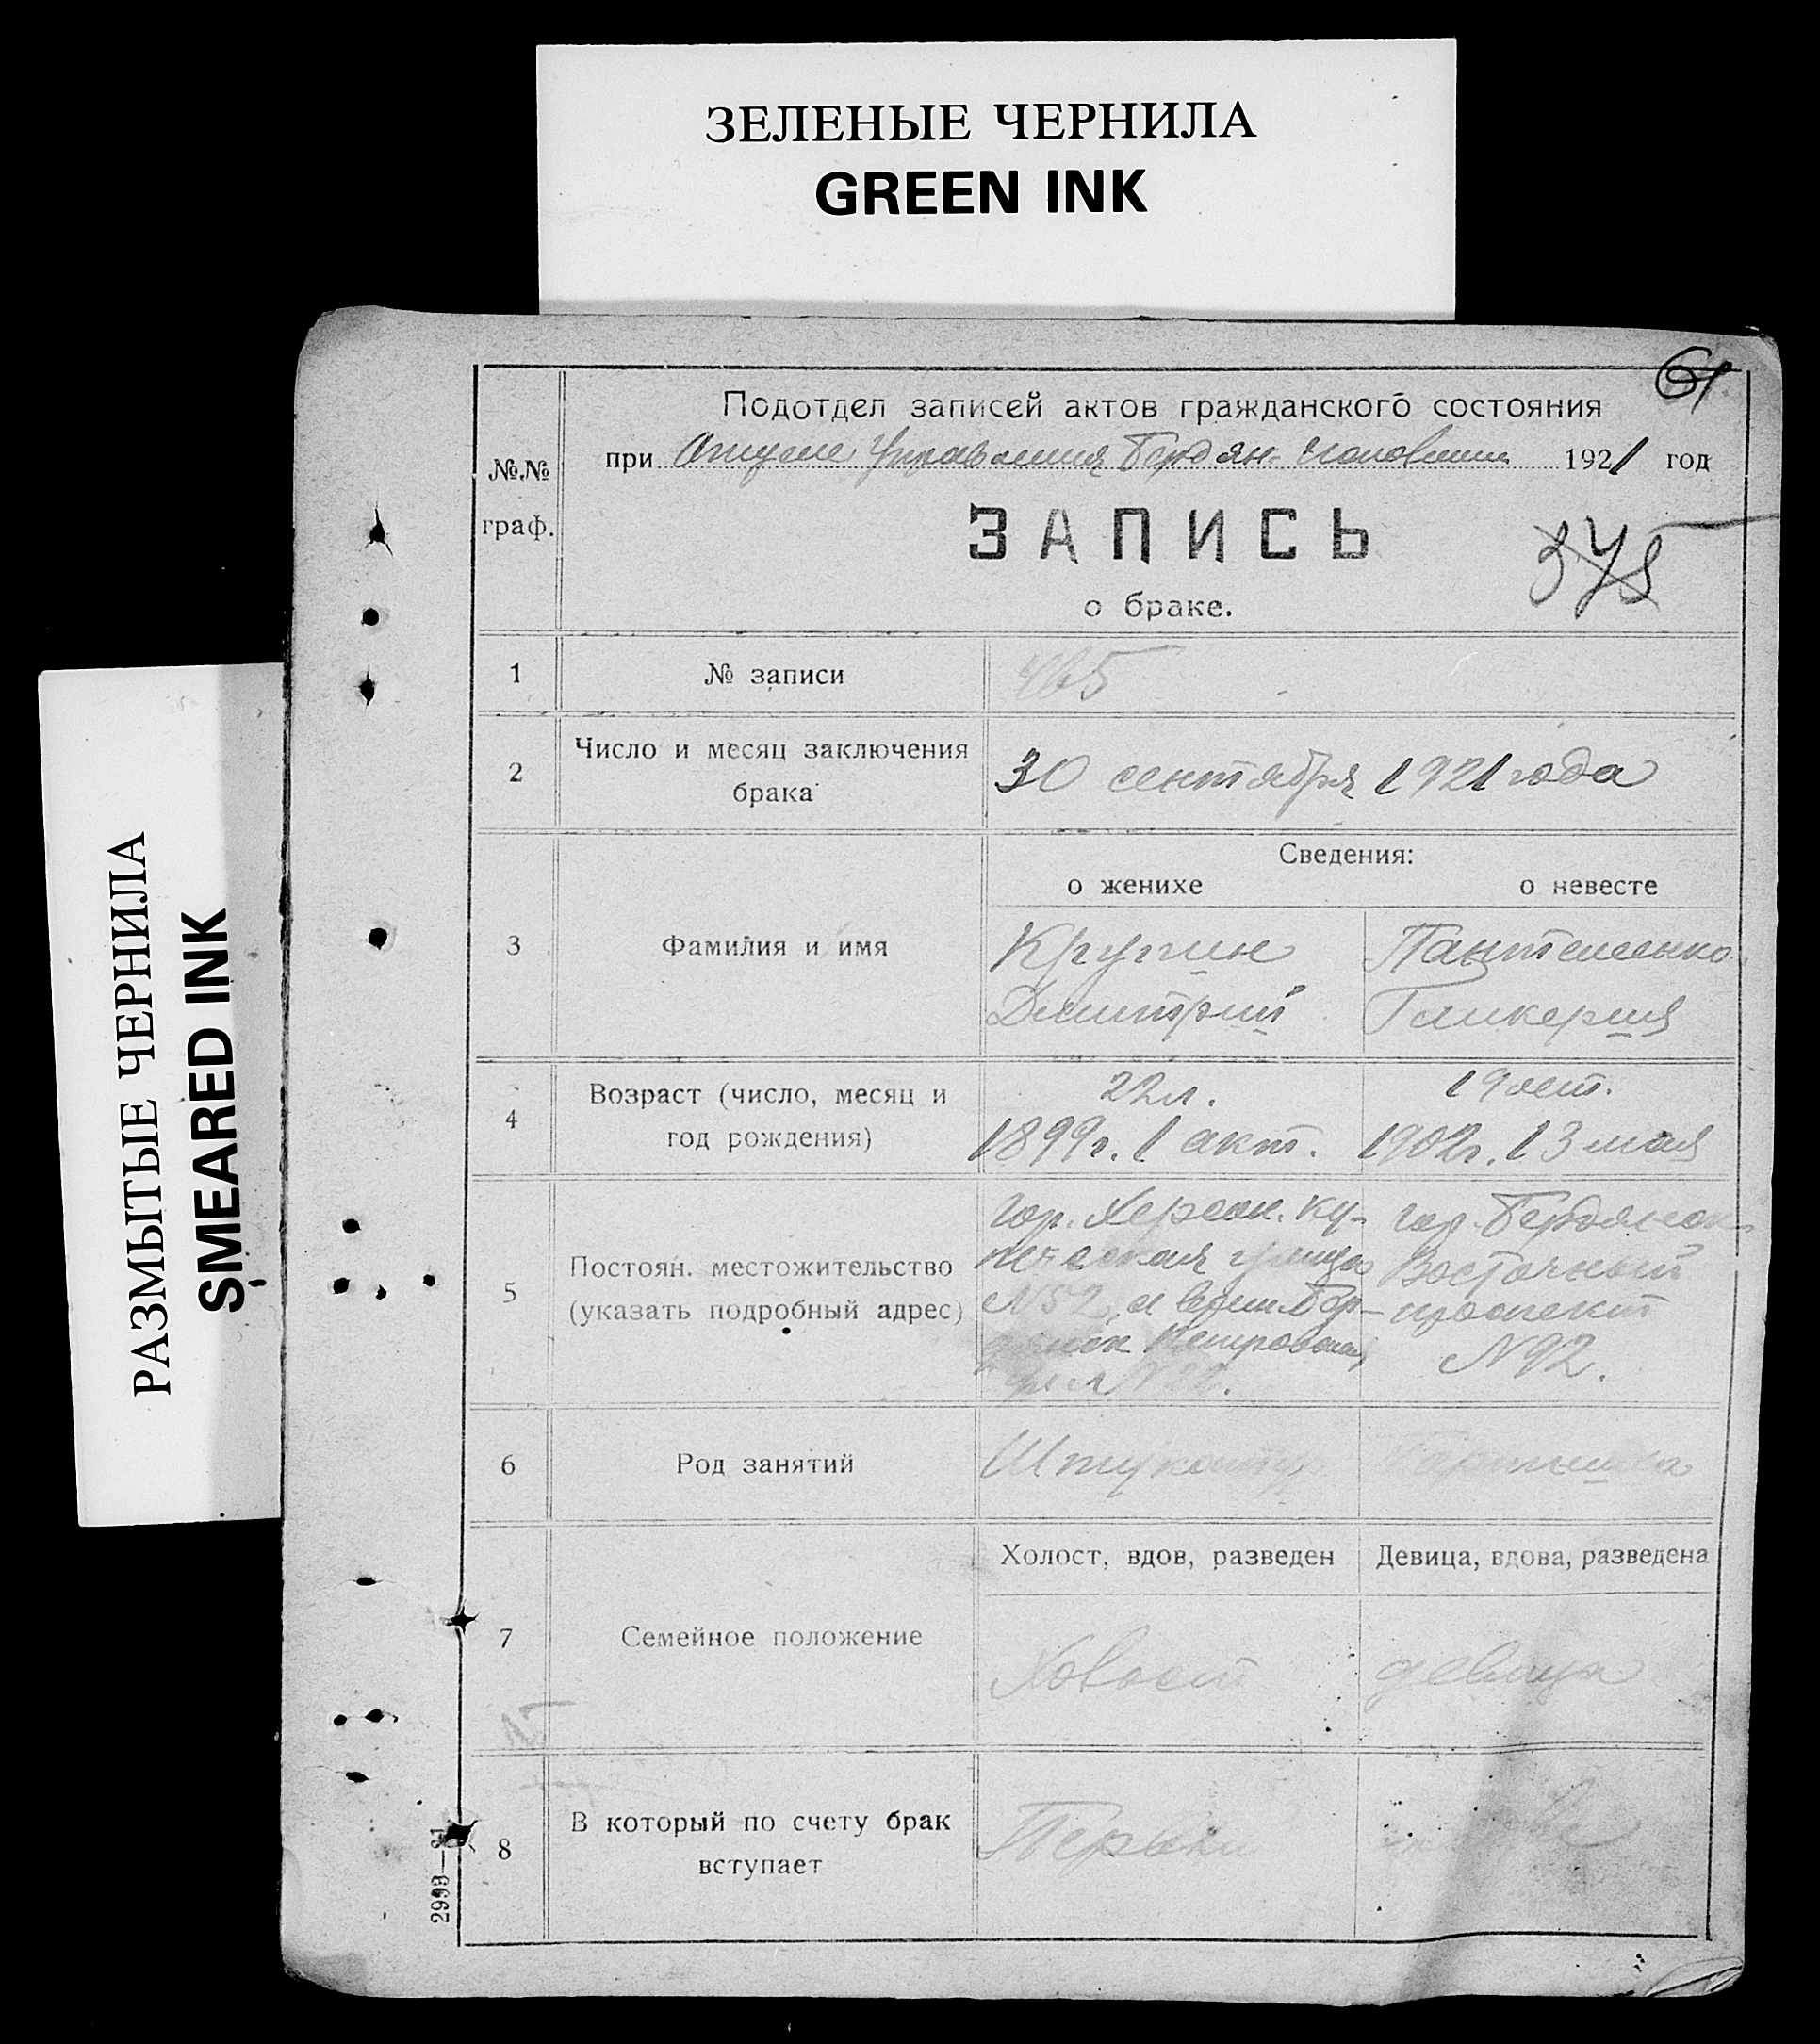 ЗЕЛЕНЫЕ ЧЕРНИЛА
GREEN INK
РАЗМЫТЫЕ ЧЕРНИЛА
SMEARED INK
61
Подотдел записей актов гражданского состояния
при Отделе Управления Бердян. 1921 год
№.№ граф.
ЗАПИСЬ
о браке.
375
1 № записи 465
2 Число и месяц заключения брака
30 сентября 1921 года
Сведения:
о женихе о невесте
3 Фамилия и имя
Крупин Пантеленко
Дмитрий Гликерия
4 Возраст (число, месяц и год рождения)
22 л. 19 лет.
1899 г. 1 акт. 1902 г. 13 мая
5 Постоян. местожительство (указать подробный адрес)
гор. Херсон. Ку- гор. Бердянск
печеская улица Восточный
N52, и Бер- проспект
дянск Петровская N92.
ул.
6 Род занятий
Штукатур
7 Семейное положение
Холост, вдов, разведен Девица, вдова, разведена
Холост девица
8 В который по счету брак вступает
Первый
2998—21